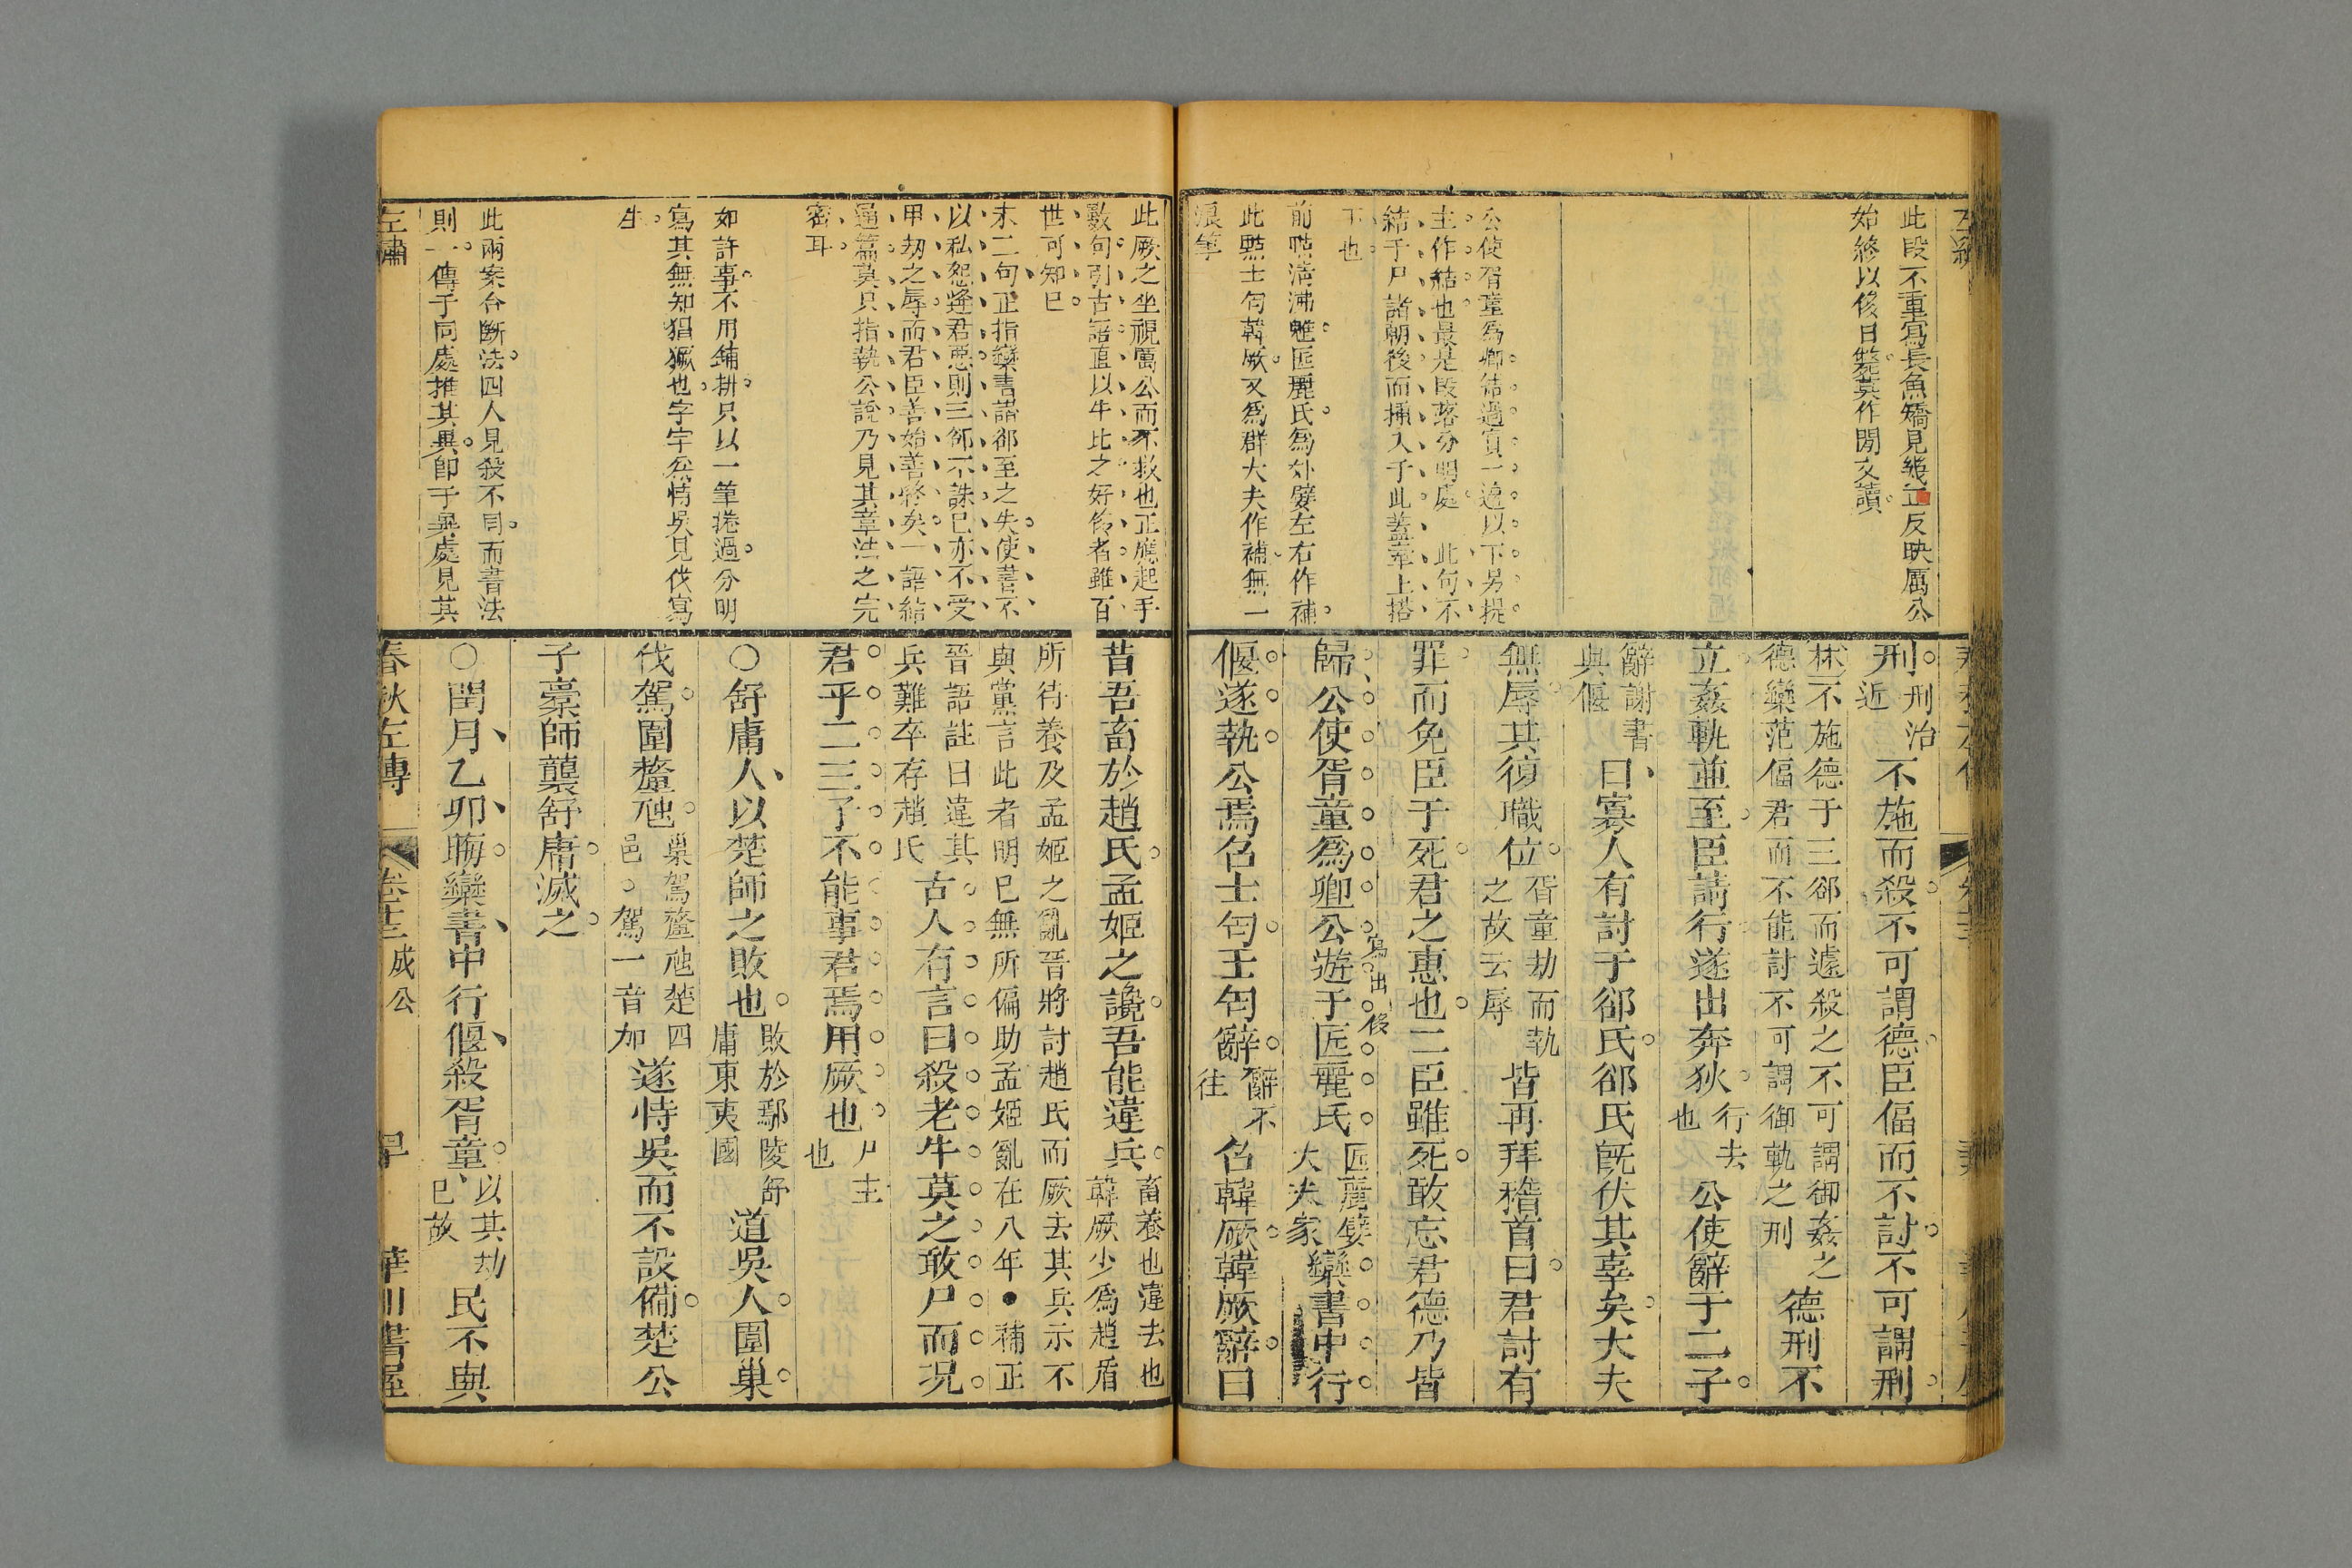 此段不重寫長魚矯見幾正反映厲公
始終以侈日斃莫作閒文讀
公使胥童爲卿結過寘一邊以下另提
主作結也最是段落分明處　此句不
結于尸諸朝後而插入于此蓋牽上搭
下也
前
匠麗氏爲外嬖左右作補
此點士匄韓厥又爲群大夫作補無一
浪筆
刑刑治
近不施而殺不可謂德臣偪而不討不可謂刑
林不施德于三郤而遽殺之不可謂御姦之
德欒范偪君而不能討不可謂御軌之刑
德刑不
立姦軌並至臣請行遂出奔狄行去
也公使辭于二子
辭謝書
與偃曰寡人有討于郤氏郤氏既伏其辜矣大夫
無辱其復職位胥童劫而執
之故云辱皆再拜稽首曰君討有
罪而免臣于死君之惠也二臣雖死敢忘君德乃皆
歸公使胥童爲卿公遊于匠麗氏匠麗嬖
大夫家欒書中行
寫出侈
偃遂執公焉召士匄士匄辭辭不
往召韓厥韓厥辭曰
此厥之坐視厲公而不救也正應起手
數句引古語直以牛比之好侈者雖百
世可知已
末二句正指欒書譖郤至之失使書不
以私怨逢君惡則三郤不誅已亦不受
甲劫之辱而君臣善始善終矣一語結
通篇莫只指執公說乃見其章法之完
密耳
如許事不用鋪排只以一筆捲過分明
寫其無知猖獗也字字無情吳見伐寫
生
此兩案合斷法四人見殺不同而書法
則一傳于同處推其異卽于異處見其
昔吾畜於趙氏孟姬之讒吾能違兵畜養也違去也
韓厥少爲趙盾
所待養及孟姬之亂晉將討趙氏而厥去其兵示不
與黨言此者明已無所偏助孟姬亂在八年●補正
晉語註曰違其
兵難卒存趙氏古人有言曰殺老牛莫之敢尸而況
君乎二三子不能事君焉用厥也尸主
也
○舒庸人以楚師之敗也敗於鄢陵舒
庸東夷國道吳人圍巢
伐駕圍釐虺巢駕釐虺楚四
邑○駕一音加遂恃吳而不設備楚公
子橐師襲舒庸滅之
○閏月乙卯晦欒書中行偃殺胥童以其劫
已故民不與
左繡
春秋左傳
卷十三成公
華川書屋